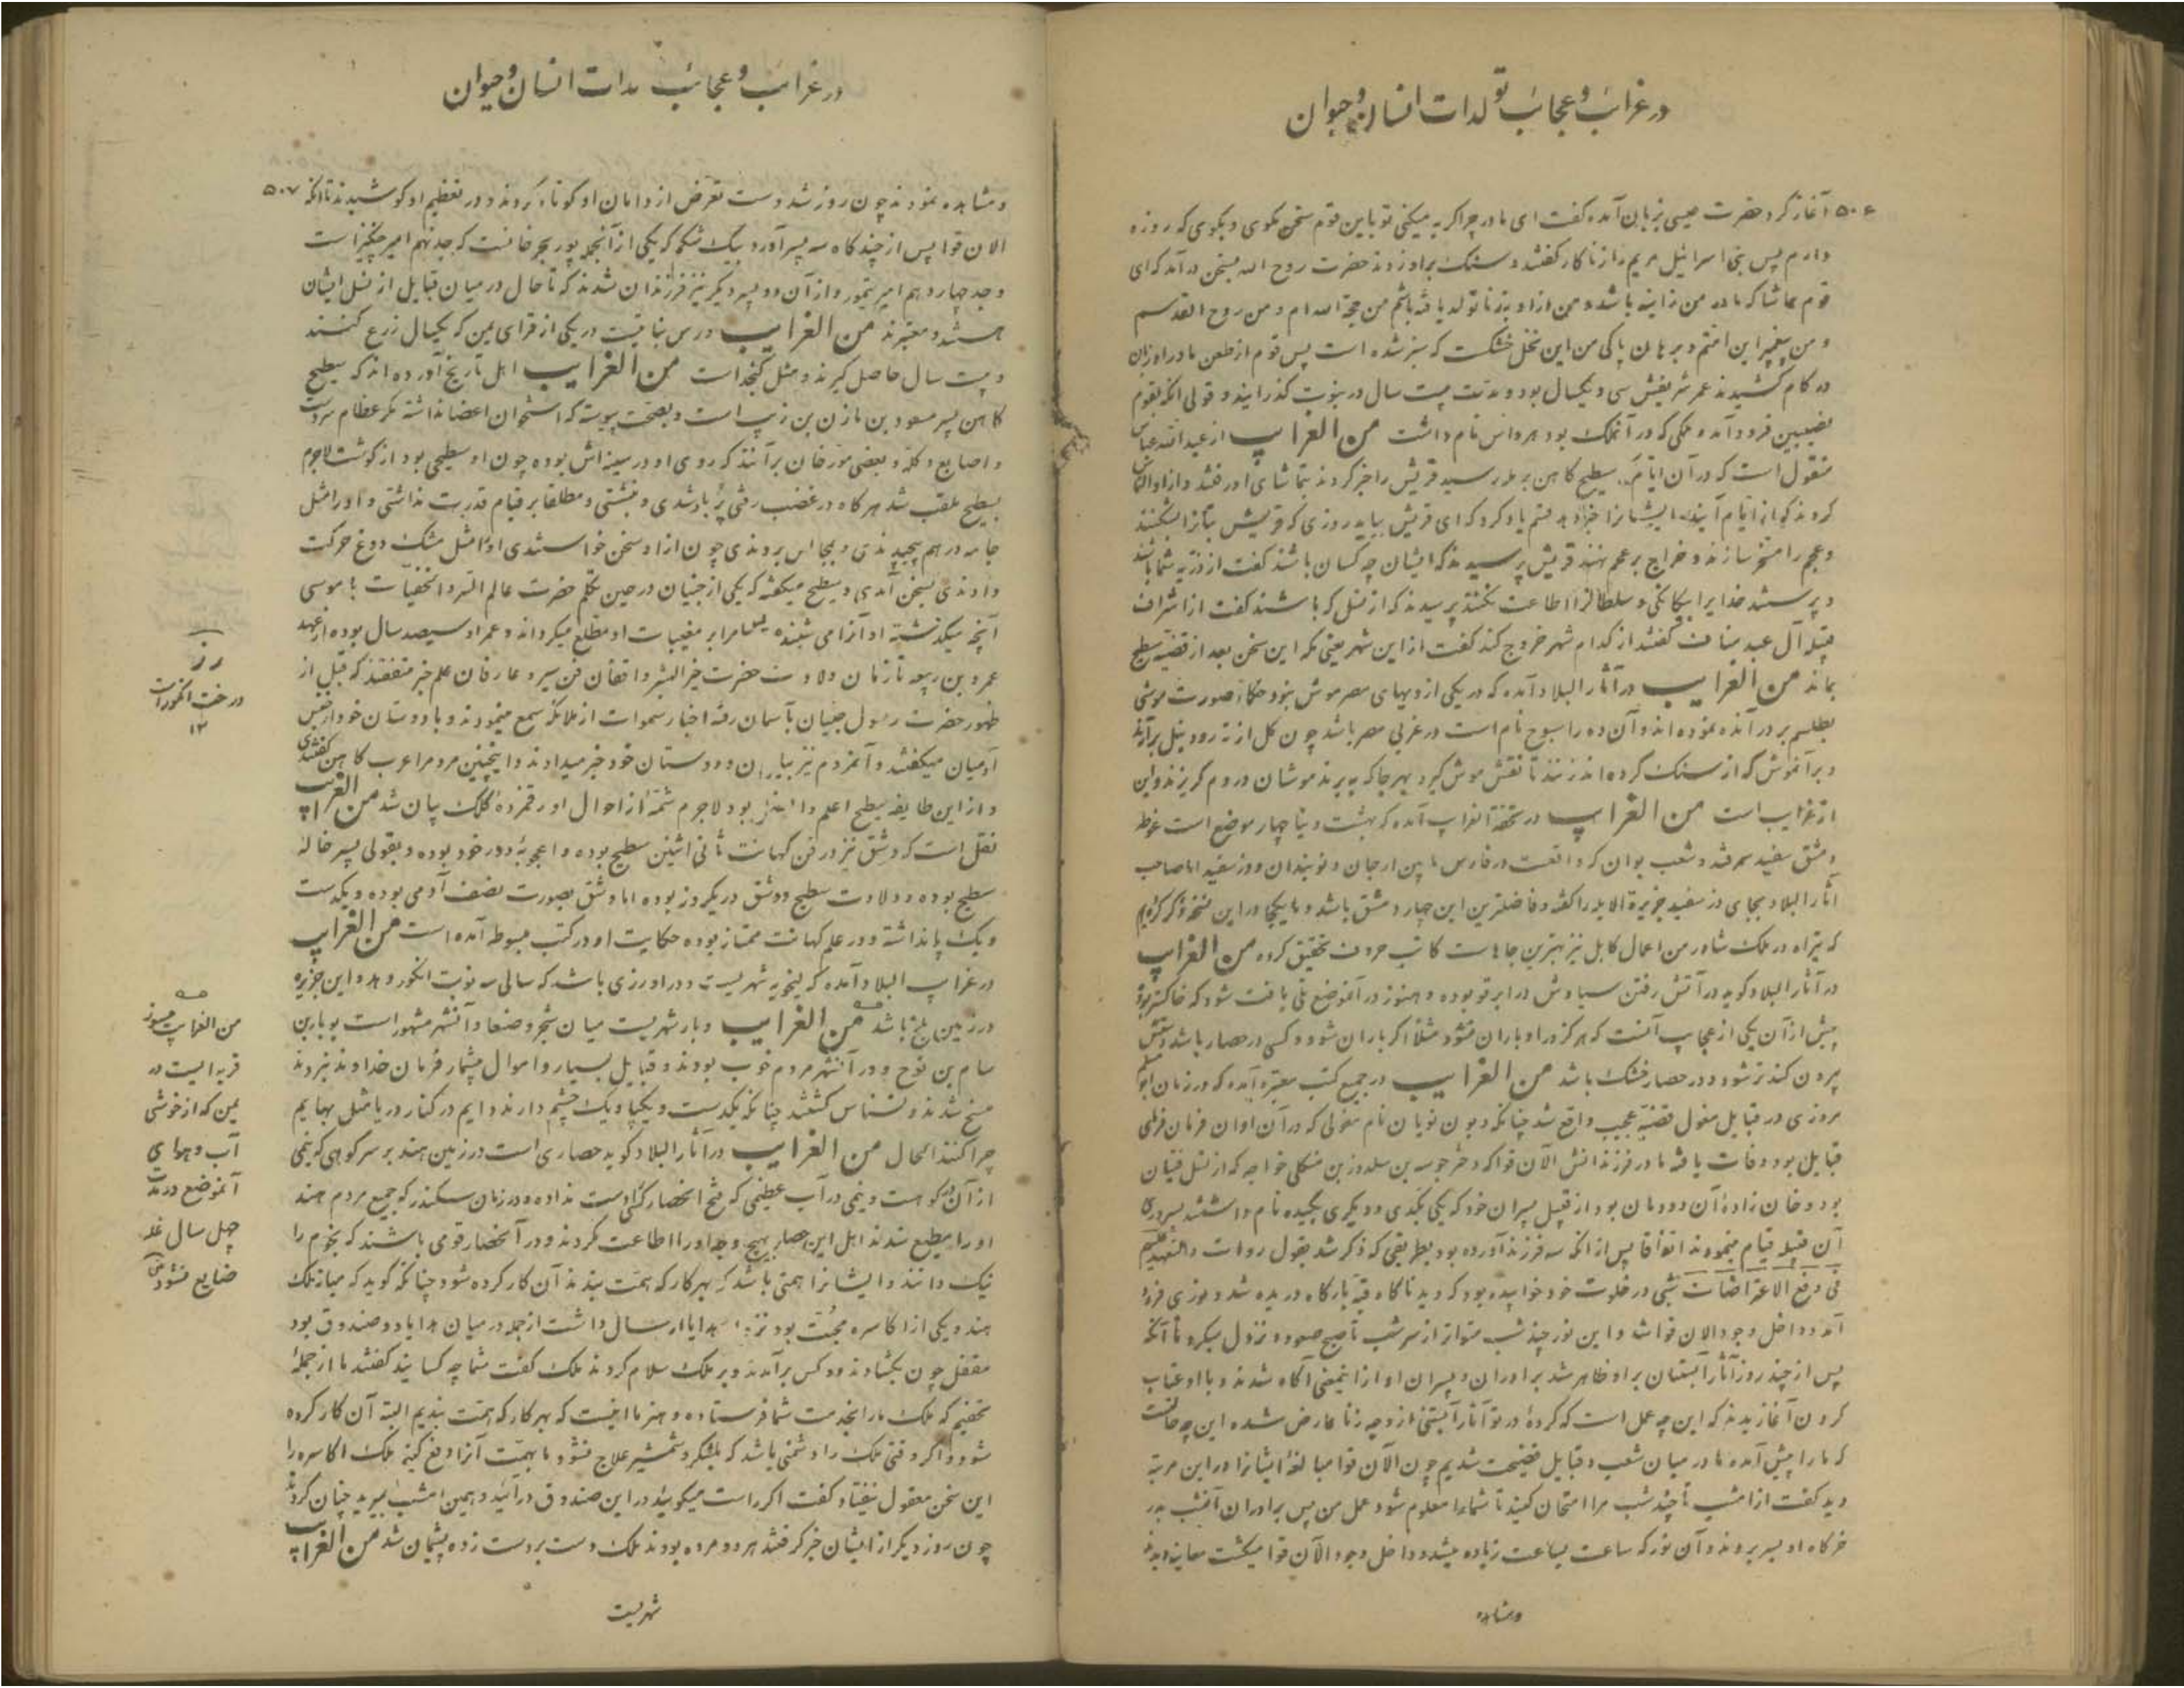 در غرائب و عجائب تولدات انسان و حیوان
۵۰۶
آغاز کرد حضرت عیسی بزبان آمده گفت ای مادر چرا کریه میکنی تو باین قوم سخن مکوی و بکوی که روزه
دارم پس بنی اسرائیل مریم را زناکار گفتند و سنک براو زدند حضرت روح الله بسخن درآمد که ای
قوم حاشا که مادر من زانیه باشد و من از او بزنا تولد یافته باشم من حجة الله ام و من روح القدسم
و من پیغمبر این امتم و برهان پاکی من این نخل خشکست که سبز شده است پس قوم از طعن مادر او زبان
در کام کشیدند عمر شریفش سی و یکسال بود و مدت بیست سال در نبوت کذرانید و قولی آنکه بقوم
نصیبین فرود آمد و ملکی که در آنملک بود هرواس نام داشت من الغرایب از عبدالله عباس
منقول است که در آن ایام سطیح کاهن بر ملأ رسید قریش را خبر کردند بتماشای او رفتند و از او التماس
کردند که از ایام آینده ایشانرا خبر دهد قسم یاد کرد که ای قریش بیاید روزی که قریش بتانرا بشکنند
و عجم را مسخر سازند و خراج بر عجم نهند قریش پرسیدند که ایشان چه کسان باشند گفت از ذریه شما باشند
و پرستند خدایرا بیکانکی و سلطانرا اطاعت نکنند پرسیدند که از نسل که باشند گفت از اشراف
قبیله آل عبد مناف گفتند از کدام شهر خروج کند گفت از این شهر یعنی مکه این سخن بعد از قضیه سطیح
بماند من الغرایب در آثار البلاد آمده که در یکی از دیههای مصر موش بنود حکما صورت موشی
بطلسم بر در آن ده نموده اند و آن ده را سبوح نام است در غربی مصر باشد چون کل از ته رود نیل برآرند
و بر آنموش که از سنک کرده اند زنند تا نقش موش کیرد بهر جا که ببرند موشان در دم کریزند و این
از غرایب است من الغرایب در تحفة الغرایب آمده که بهشت دنیا چهار موضع است غوطه
دمشق سغد سمرقند و شعب بوان که واقعست در فارس مابین ارجان و نوبندان و وز سفید اما صاحب
آثار البلاد بجای دز سفید جزیرة الابله را کفته و فاضلترین این چهار دمشق باشد و ما یکجا در این نسخه ذکر کرده‌ایم
که تیراه در ملک شاور من اعمال کابل نیز بهترین جاهاست کاتب حروف تحقیق کرده من الغرایب
در آثار البلاد کوید در آتش رفتن سیاوش در ابرقو بوده و هنوز در آنموضع تلی یافت شود که خاکستر بوده
پیش از آن یکی از عجایب آنست که هرکز در او باران نشود مثلاً اکر باران شود و کسی در حصار باشد و دستش
بیرون کند تر شود و در حصار خشک باشد من الغرایب در جمیع کتب معتبره آمده که در زمان ابو مسلم
مروزی در قبایل مغول قضیه عجیب واقع شد چنانکه دبون نویان نام مغولی که در آن اوان فرمان فرمای
قبایل بود وفات یافته مادر فرزندانش الآن قوا که دختر جوسه بن سلدوز بن منکلی خواجه که از نسل قیان
بود و خان زادهٔ آن دودمان بود از قبیل پسران خود که یکی بکدی و دیکری بکیده نام داشتند بسرداری
آن قبیله قیام مینمودند اتفاقا پس از آنکه سه فرزند آورده بود بطریقی که ذکر شد بقول روات والعهد علیهم
فی دفع الاعتراضات شبی در خلوت خود خوابیده بود که دید ناکاه قبه بارکاه دریده شد و نوری فرود
آمد و داخل وجود الان قوا شد و این نور چند شب متواتر از سر شب تا صبح صعود و نزول میکرد تا آنکه
پس از چند روز آثار آبستان بر او ظاهر شد برادران و پسران او از اینمعنی آکاه شدند و با او عتاب
کردن آغازیدند که این چه عمل است که کردهٔ در تو آثار آبستنی از وجه زنا عارض شده این چه حالتست
که ما را پیش آمده ما در میان شعب و قبایل فضیحت شدیم چون الآن قوا مبالغهٔ ایشانرا در این مرتبه
دید گفت از امشب تا چند شب مرا امتحان کنید تا شمارا معلوم شود عمل من پس برادران آنشب بدر
خرکاه او بسر بردند و آن نور که ساعت بساعت زیاده میشد و داخل وجود الآن قوا میکشت معاینه دیدند
و مشاهده
در غرائب و عجائب مدات انسان و حیوان
۵۰۷
و مشاهده نمودند چون روز شد دست تعرض از دامان او کوتاه کردند و در تعظیم او کوشیدند تا آنکه
الان قوا پس از چند کاه سه پسر آورد بیک شکم که یکی از آنجمله بوزنجر خانست که جد نهم امیر چنگیز است
و جد چهاردهم امیر تیمور و از آن دو پسر دیکر نیز فرزندان شدند که تا حال در میان قبایل از نسل ایشان
هستند و معتبرند من الغرایب ورس بناتیست در یکی از قرای یمن که یکسال زرع کنند
و بیست سال حاصل کیرند و مثل کنجد است من الغرایب اهل تاریخ آورده اند که سطیح
کاهن پسر مسعود بن مازن بن ذیب است و بصحت پیوسته که استخوان اعضا نداشته مکر عظام سر و دست
و اصابع و کله و بعضی مورخان برآنند که روی او در سینه اش بوده چون او سطیحی بود از کوشت لاجرم
بسطیح ملقب شد هر کاه در غضب رفتی پُر باد شدی و نشستی و مطلقا بر قیام قدرت نداشتی و اورا مثل
جامه در هم پیچیدندی و بمجالس بردندی چون از او سخن خواستندی اورا مثل مشک دوغ حرکت
دادندی بسخن آمدی و سطیح میکفته که یکی از جنیان در حین تکلم حضرت عالم السر و الخفیات با موسی
آنچه میکذشته او آنرا می شنیده مرا بر مغیبات او مطلع میکرداند و عمر او سیصد سال بوده از عهد
عمرو بن ربیعه تا زمان ولادت حضرت خیر البشر واقفان فن سیر و عارفان علم خبر متفقند که قبل از
ظهور حضرت رسول جنیان بآسمان رفته اخبار سموات از ملائکه سمع مینمودند و با دوستان خود از جنس
آدمیان میکفتند و آنمردم نیز بیاران و دوستان خود خبر میدادند و اینچنین مردم را عرب کاهن گفتندی
و از این طایفه سطیح اعلم و اشهر بود لاجرم شمهٔ از احوال او رقمزدهٔ کلک بیان شد من الغرایب
نقل است که وشق نیز در فن کهانت ثانی اثنین سطیح بوده و اعجوبهٔ دور خود بوده و بقولی پسر خاله
سطیح بوده و ولادت سطیح و وشق در یکروز بوده اما وشق بصورت نصف آدمی بوده و یکدست
و یک پا نداشته و در علم کهانت ممتاز بوده حکایت او در کتب مبسوطه آمده است من الغرایب
در غرایب البلاد آمده که لنجویه شهریست و در او رزی باشد که سالی سه نوبت انکور دهد و این جزیره
در زمین بلخ باشد من الغرایب وبار شهریست میان شحر و صنعا و آنشهر مشهور است بوبار بن
سام بن نوح و در آنشهر مردم خوب بودند و قبایل بسیار و اموال بیشمار فرمان خداوند نبردند
مسخ شدند و نسناس کشتند چنانکه یکدست و یکپا و یک چشم دارند دایم در کنار دریا مثل بهایم
چرا کنند الحال من الغرایب در آثار البلاد کوید حصاری است در زمین هند بر سر کوهی که نیمی
از آن در کوه است و نیمی در آب عظیمی که فتح آنحصار کسی را دست نداده و در زمان سکندر که جمیع مردم هند
او را مطیع شدند اهل این حصار بهیچ وجه اورا اطاعت نکردند و در آنحصار قومی باشند که نجوم را
نیک دانند و ایشانرا همتی باشد که بهر کار که همت بندند آن کار کرده شود چنانکه کوید که میانه ملک
هند و یکی از اکاسره محبت بود نزد او هدایا ارسال داشت از جمله در میان هدایا دو صندوق بود
مقفل چون بکشادند دو کس برآمدند و بر ملک سلام کردند ملک گفت شما چه کسانید گفتند ما از جملهٔ
تحفیم که ملک ما را بخدمت شما فرستاده و هنر ما اینست که بهر کار که همت بندیم البته آن کار کرده
شود و اکر وقتی ملک را دشمنی باشد که بلشکر و شمشیر علاج نشود ما بهمت آنرا دفع کنیم ملک اکاسره را
این سخن معقول نیفتاد گفت اکر راست میکوئید در این صندوق درآئید و همین امشب بمیرید چنان کردند
چون روز دیکر از ایشان خبر کرفتند هر دو مرده بودند ملک دست بر دست زده پشیمان شد من الغرایب
شهریست
رز
درخت انکور است
۱۲
من الغرایب
قریه ایست در
یمن که از خوشی
آب و هوای
آنموضع در مدت
چهل سال غله
ضایع نشود